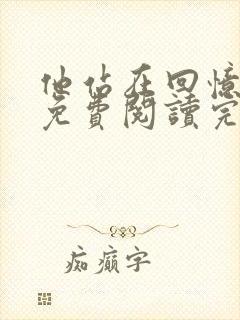 他站在回憶
免費閱讀完
痴癲字